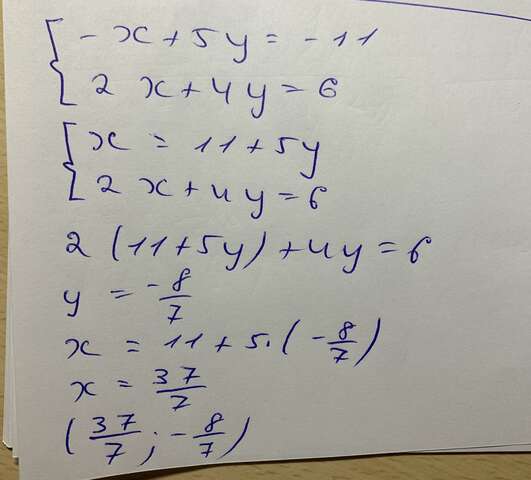 - x + 5y = - 11
2 x + 4y = 6
x = 11 + 5y
2 x + 4y = 6
2 (11 + 5y) + 4y = 6
y = -8/7
x = 11 + 5 · (-8/7)
x = 37/7
(37/7 ; -8/7)